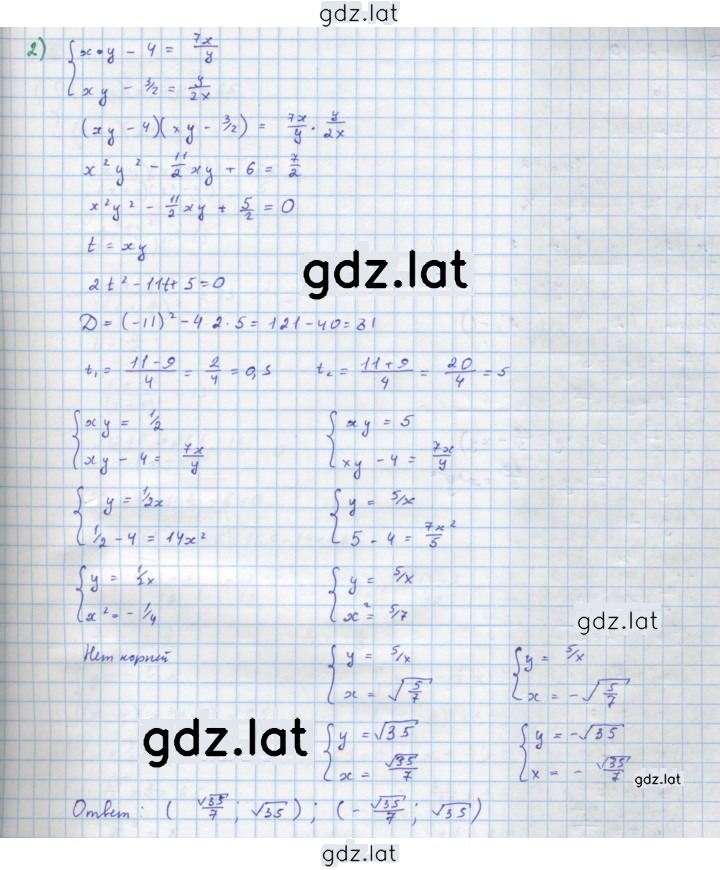 gdz.lat
2) { x·y - 4 = 7x/y
{ xy - 3/2 = y/2x
(xy - 4)(xy - 3/2) = 7x/y · y/2x
x²y² - 11/2 xy + 6 = 7/2
x²y² - 11/2 xy + 5/2 = 0
t = xy
gdz.lat
2t² - 11t + 5 = 0
D = (-11)² - 4 2·5 = 121 - 40 = 81
t₁ = (11-9)/4 = 2/4 = 0,5 t₂ = (11+9)/4 = 20/4 = 5
{ xy = 1/2 { xy = 5
{ xy - 4 = 7x/y { xy - 4 = 7x/y
{ y = 1/2x { y = 5/x
{ 1/2 - 4 = 14x² { 5 - 4 = 7x²/5
{ y = 1/2x { y = 5/x
{ x² = - 1/4 { x² = 5/7
gdz.lat
Нет корней { y = 5/x { y = 5/x
{ x = √(5/7) { x = - √(5/7)
gdz.lat
{ y = √35 { y = -√35
{ x = √35/7 { x = - √35/7
gdz.lat
Ответ: ( √35/7 ; √35 ) ; (- √35/7 ; √35 )
gdz.lat